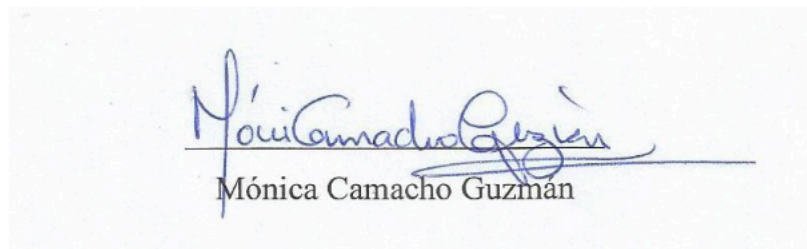 MóniCamachoGuzmán
Mónica Camacho Guzmán